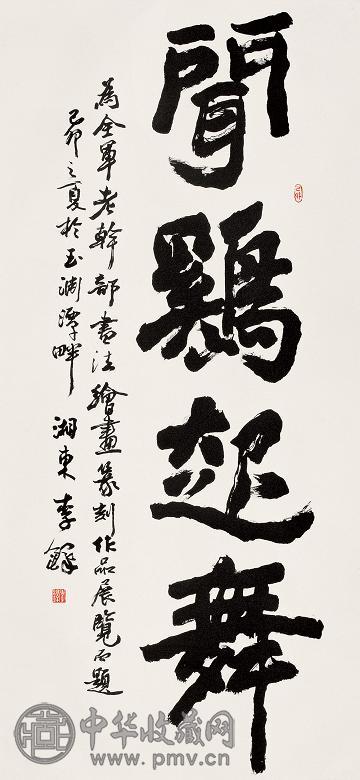 聞鷄起舞
為全軍老幹部書法繪畫篆刻作品展覽而題
己卯之夏於玉淵潭畔
湘東李鐸
中华收藏网
www.pmv.cn